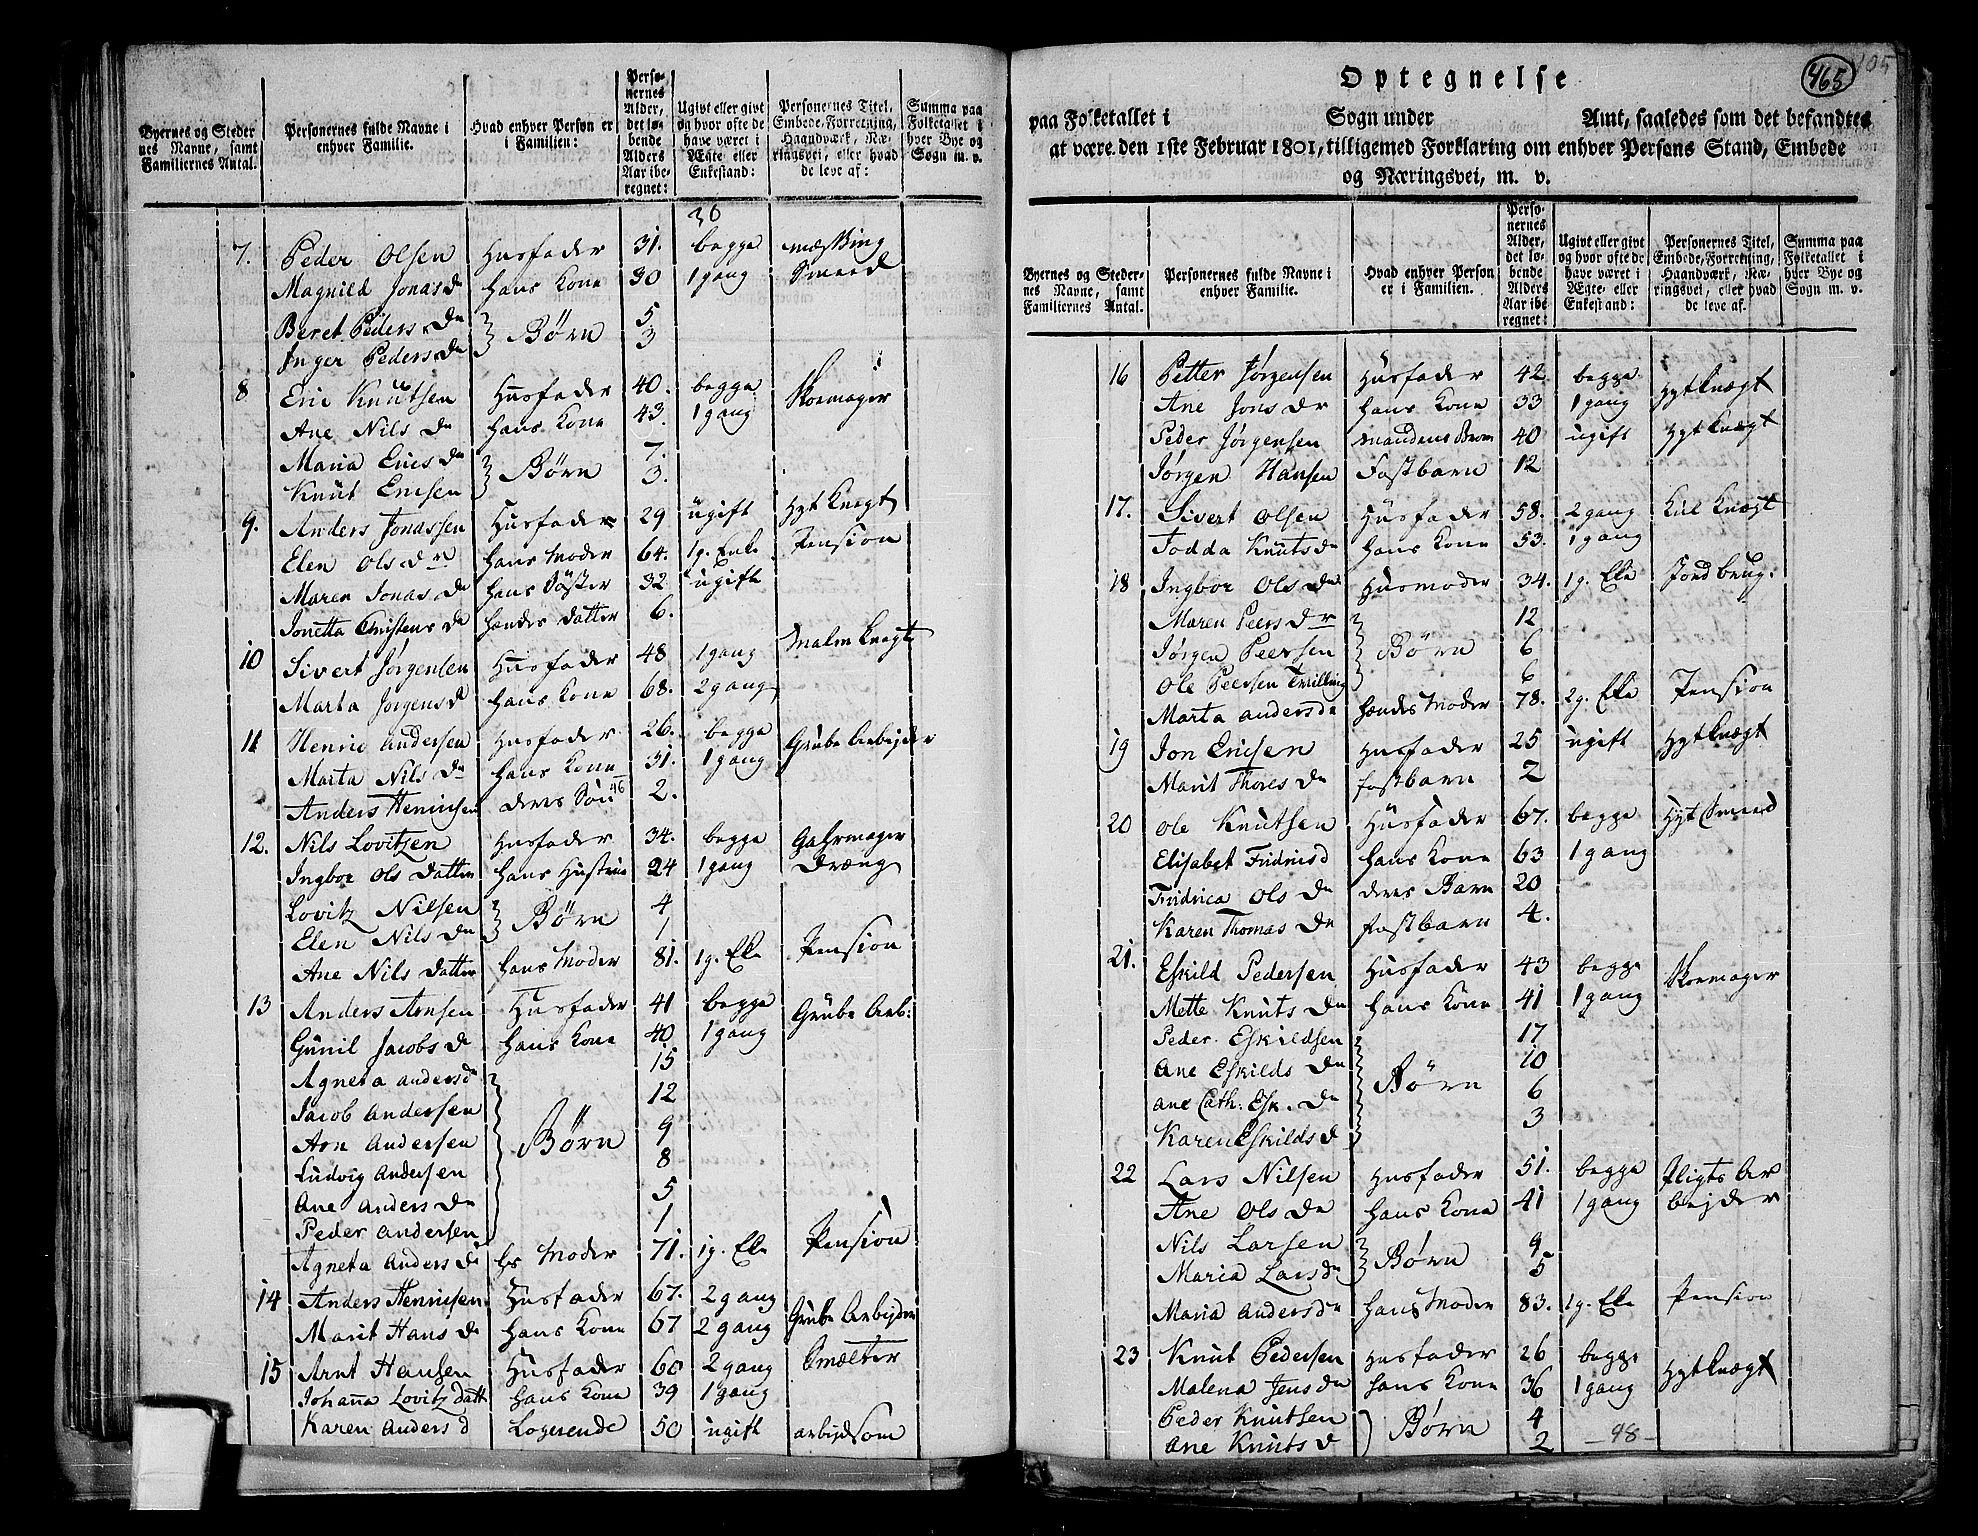 Byernes og Steder
nes Navne, samt
Familiernes Antal.
Personernes fulde Navne i
enhver Familie.
Hvad enhver Person er
i Familien:
Perso-
nernes
Alder,
det lø-
bende
Alders
Aar ibe-
regnet:
Ugivt eller givt
og hvor ofte de
have været i
Ægte eller
Enkestand:
Personernes Titel,
Embede, Forretning,
Haandværk, Næ-
ringsvei, eller hvad
de leve af:
Summa paa
Folketallet i
hver Bye og
Sogn m. v.
36
7. Peder Olsen Husfader 31. begge mæssing
Magnild Jonas Dr hans Kone 30 1 gang Smeed
Beret Peders Dr } Børn 5
Inger Peders Dr 3
8 Eric Knutsen Husfader 40. begge Skomager
Ane Nils Dr hans Kone 43. 1 gang
Maria Erics Dr } Børn 7.
Knut Ericsen 3.
9. Anders Jonassen Husfader 29 ugift Hytknegt
Elen Ols Dr hans Moder 64. 1g. Enke Pension
Maren Jonas Dr hans Söster 32 ugift
Jonetta Christens Dr hendes Datter 6.
10 Sivert Jørgensen Husfader 48 1 gang Malm knegt
Marta Jørgens d hans Kone 68. 2 gang
11 Henric Andersen Husfader 26. begge Grube Arbejder
Marta Nils Dr hans Kone 31. 1 gang
Anders Henricsen deres Sön 46 2.
12. Nils Lovitzen Husfader 34. begge Gahrmager
Ingbor Ols Datter hans Hustrue 24 1 gang Dræng
Lovitz Nilsen } Børn 4
Elen Nils Dr 1
Ane Nils Datter hans Moder 81. 1g. Eke Pension
13 Anders Arnsen Husfader 41 begge Grube Arb:
Gunil Jacobs Dr hans Kone 40 1 gang
Agneta Anders d 15
Jacob Andersen 12
Arn Andersen } Børn 9
Ludvig Andersen 8
Ane Anders Dr 5
Peder Andersen 1
Agneta Anders Dr hs Moder 71. 1g. Eke Pension
14 Anders Henricsen Husfader 67. 2 gang Grube Arbejder
Marit Hans Dr hans Kone 67 2 gang
15 Arnt Hansen Husfader 60 2 gang Smelter
Johanna Lovitz datt hans Kone 39 1 gang
Karen Anders d Logerende 50 ugift arbejdsom
465
105
Optegnelse
paa Folketallet i Sogn under Amt, saaledes som det befandtes
at være den 1ste Februar 1801, tilligemed Forklaring om enhver Persons Stand, Embede
og Næringsvei, m. v.
Byernes og Steder-
nes Navne, samt
Familiernes Antal.
Personernes fulde Navne i
enhver Familie.
Hvad enhver Person
er i Familien.
Perso-
nernes
Alder,
det lø-
bende
Alders
Aar ibe-
regnet:
Ugivt eller givt
og hvor ofte de
have været i
Ægte- eller
Enkestand:
Personernes Titel,
Embede, Forretning,
Haandværk, Næ-
ringsvei, eller hvad
de leve af.
Summa paa
Folketallet i
hver Bye og
Sogn m. v.
16 Petter Jørgensen Husfader 42. begge Hytknægt
Ane Jons Dr hans Kone 33 1 gang
Peder Jørgensen mandens Broer 40 ugift Hytknægt
Jørgen Hansen Fostbarn 12
17. Sivert Olsen Husfader 58. 2 gang Kul Knægt
Todda Knuts Dr hans Kone 53. 1 gang
18 Ingbor Ols Dr Husmoder 34. 1g. Eke Jordbrug.
Maren Peers Dr 12
Jørgen Peersen } Børn 6
Ole Peersen Tvilling 6
Marta Anders Dr hendes Moder 78. 2g. Eke Pension
19 Jon Ericsen Husfader 25 ugift Hytknægt
Marit Thores Dr fostbarn 2
20 Ole Knutsen Husfader 67. begge Hyt Smeed
Elisabet Fridrics d hans Kone 63 1 gang
Fridrica Ols Dr deres Barn 20
Karen Thomas Dr fostbarn 4.
21. Eskild Pedersen Husfader 43 begge Skomager
Mette Knuts Dr hans Kone 41 1 gang
Peder Eskildsen 17
Ane Eskilds Dr } Børn 10
Ane Cath. Esk. Dr 6
Karen Eskilds d 3
22 Lars Nilsen Husfader 51. begge Pligts Ar
Ane Ols Dr hans Kone 41 1 gang bejder
Nils Larsen } Børn 9
Maria Lars Dr 5
Maria Anders Dr hans Moder 83. 1g. Eke Pension
23 Knut Pedersen Husfader 26 begge Hytknægt
Malena Jens Dr hans Kone 36 1 gang
Peder Knutsen } Børn 4
Ane Knuts d 2 - 48 -